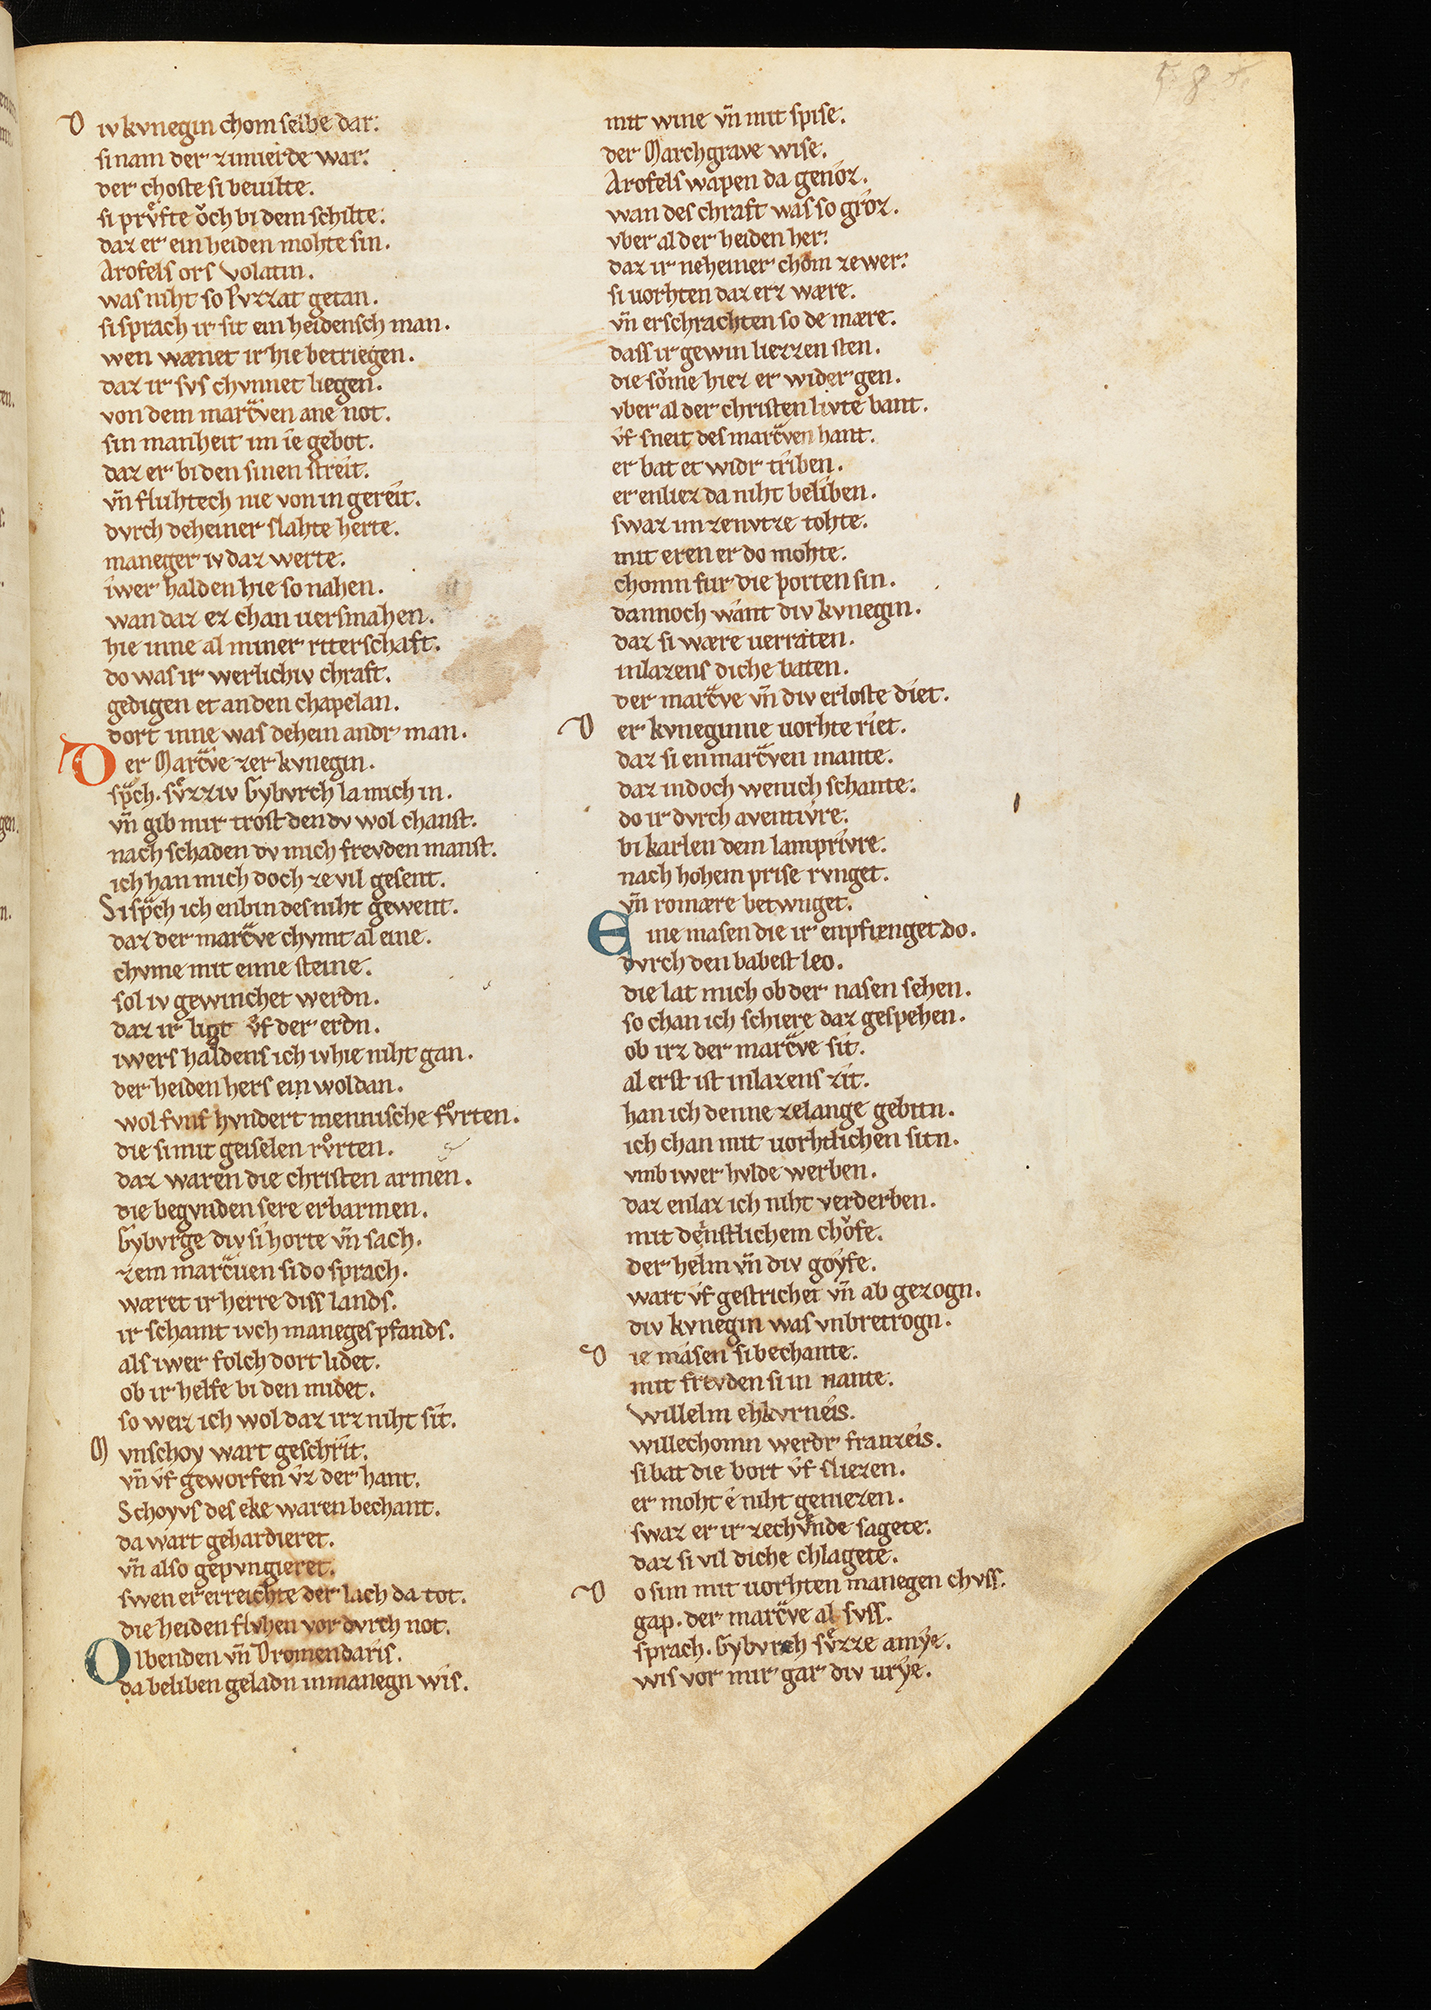 D iv kvnegin chom selbe dar.
si nam der zimierde war.
der choste si bevilte.
si prvͤfte oͮch bi dem schilte.
daz er ein heiden mohte sin.
Arofels ors Volatin.
was niht so kvrzzat getan.
si sprach ir sit ein heidensch man.
wen wænet ir hie betriegen.
daz ir svs chvnnet liegen.
von dem marcͣven ane not.
sin manheit im ie gebot.
daz er bi den sinen streit.
vn̄ fluhtech nie von in gereit.
dvrch deheiner slahte herte.
maneger iv daz werte.
iwer halden hie so nahen.
wan daz ez chan versmahen.
hie inne al miner ritterschaft.
do was ir werlichiv chraft.
gedigen et an den chapelan.
dort inne was dehein andr man.
Der Marcͣve zer kvnegin.
spͣch. svͤzziv Gybvrch la mich in.
vn̄ gib mir trost den dv wol chanst.
nach schaden dv mich frevden manst.
ich han mich doch ze vil gesent.
Si spͣch ich enbin des niht gewent.
daz der marcͣve chvmt al eine.
chvme mit eime steine.
sol iv gewinchet werdn.
daz ir ligt vf der erdn.
iwers haldens ich iv hie niht gan.
der heiden hers ein woldan.
wol fvnf hvndert mennische fvͦrten.
die si mit geiselen rvͦrten.
daz waren die christen armen.
die begvnden sere erbarmen.
Gybvrge div si horte vn̄ sach.
zem marcͣuen si do sprach.
wæret ir herre diss lands.
ir schamt ivch maneges pfands.
als iwer folch dort lidet.
ob ir helfe bi den midet.
so weiz ich wol daz irz niht sit.
M vnschoy wart geschrit.
vn̄ vf geworfen vz der hant.
Schoyvs des eke waren bechant.
da wart gehardieret.
vn̄ also gepvngieret.
swen er erreichte der lach da tot.
die heiden flvhen vor dvrch not.
Olbenden vn̄ Dromendaris.
da beliben geladn in manegn wis.
mit wine vn̄ mit spise.
der Marchgrave wise.
Arofels wapen da genoz.
wan des chraft was so groz.
vber al der heiden her.
daz ir neheiner chom ze wer.
si vorhten daz erz wære.
vn̄ erschrachten so de mære.
dass ir gewin liezzen sten.
die soͮme hiez er wider gen.
vber al der christen livte bant.
vf sneit des marcͣven hant.
er bat et widr triben.
er enliez da niht beliben.
swaz im ze nvtze tohte.
mit eren er do mohte.
chomn fur die porten sin.
dannoch want div kvnegin.
daz si wære verraten.
inlazens diche baten.
der marcͣve vn̄ div erloste diet.
D er kvneginne vorhte riet.
daz si en marcͣven mante.
daz in doch wenich schante.
do ir dvrch aventivre.
bi karlen dem lamprivre.
nach hohem prise rvnget.
vn̄ romære betwnget.
Eine masen die ir enpfienget do.
dvrch den babest leo.
die lat mich ob der nasen sehen.
so chan ich schiere daz gespehen.
ob irz der marcͣve sit.
al erst ist inlazens zit.
han ich denne ze lange gebitn.
ich chan mit vorhtlichen sitn.
vmb iwer hvlde werben.
daz enlaz ich niht verderben.
mit denstlichem choͮfe.
der helm vn̄ div goyfe.
wart vf gestrichet vn̄ ab gezogn.
div kvnegin was vnbretrogn.
D ie masen si bechante.
mit frevden si in nante.
willelm ehkvrneis.
willechomn werdr franzeis.
si bat die bort vf sliezen.
er moht e niht geniezen.
swaz er ir ze chvͤnde sagete.
daz si vil diche chlagete.
D o si im mit vorhten manegen chvss.
gap. der marcͣve al svss.
sprach. Gybvrch svͤzze amye.
wis vor mir gar div vrye.